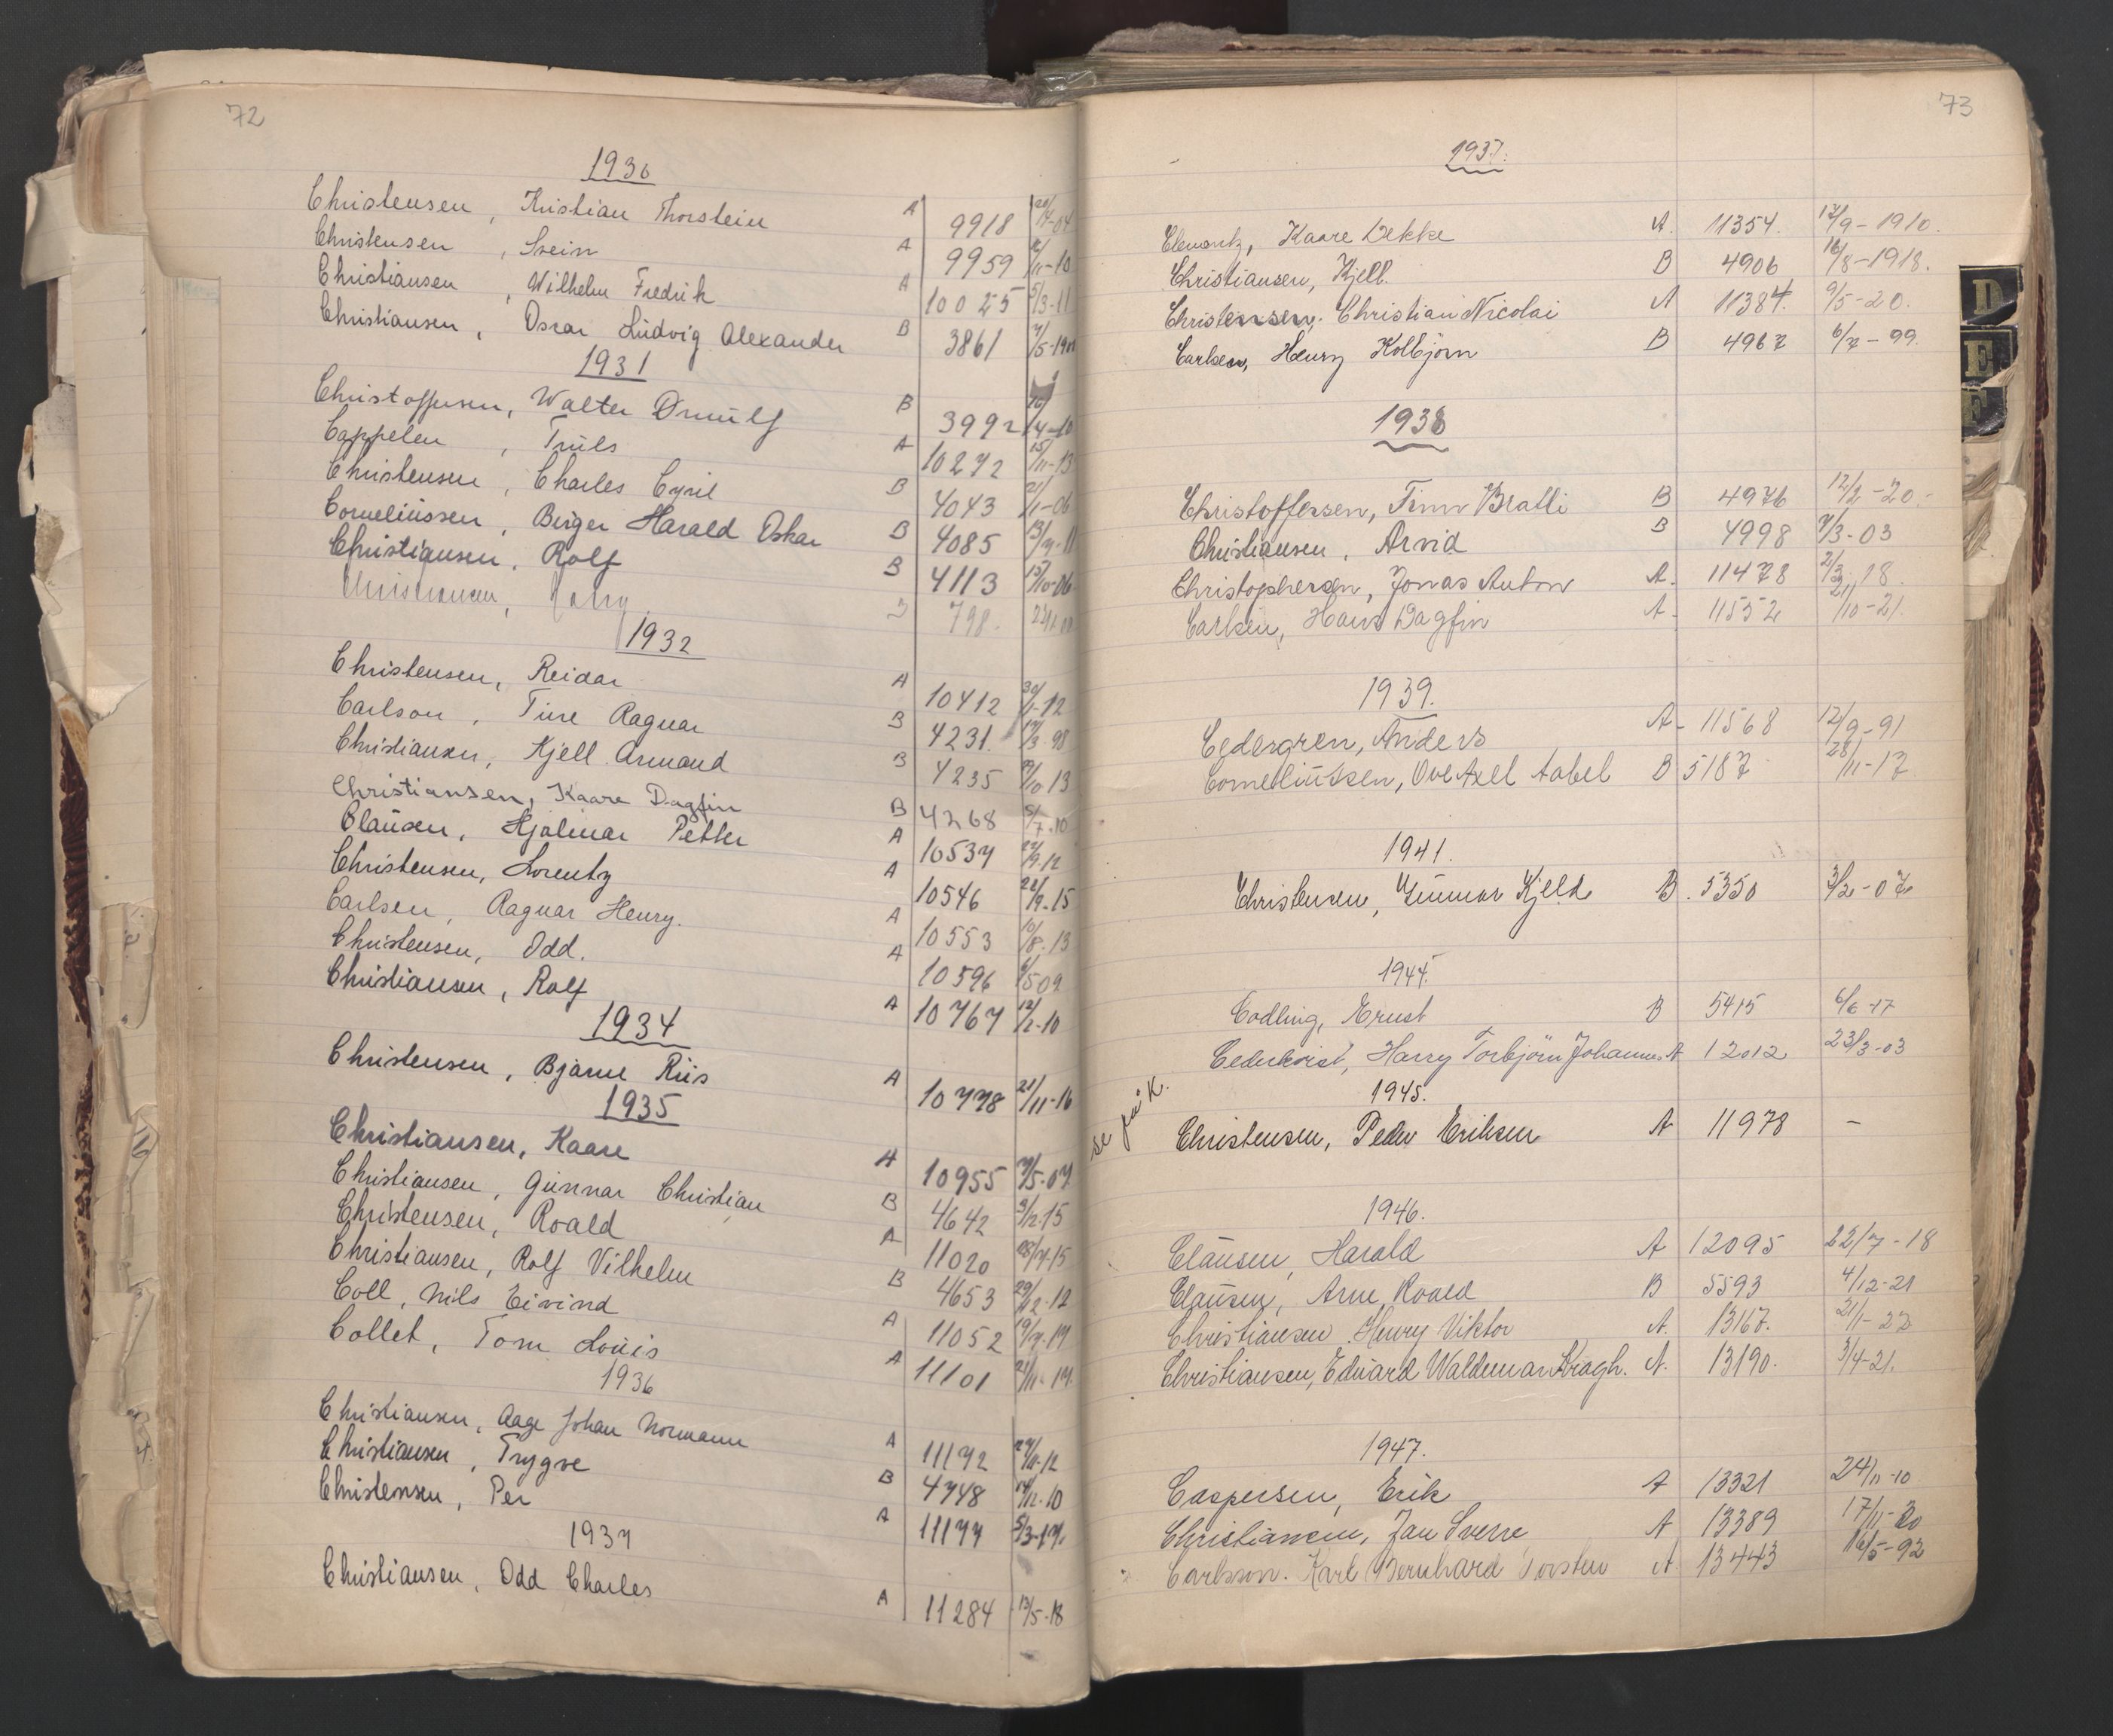 72
1930
Christensen, Kristian Thorstein A 9918 20/4-04
Christensen, Svein A 9959 2/11-10
Christiansen, Wilhelm Fredrik A 10025 5/3-11
Christiansen, Oscar Ludvig Alexander B 3861 7/5-1901
1931
Christoffersen, Walter Ørnulf B 3992 /4-10
Cappelen, Truls A 10272 15/11-13
Christensen, Charles Cyril B 4043 21/1-06
Corneliussen, Birger Harald Oskar B 4085 13/9-11
Christiansen, Rolf B 4113 15/10-06
Christiansen, 798.
1932
Christensen, Reidar A 10412 30/1-12
Carlson, Ture Ragnar B 4231. 17/3-98
Christiansen, Kjell Armand B 4235 /10 13
Christiansen, Kaare Dagfin B 4268 5/7-10
Clausen, Hjalmar Petter A 10537 27/9-12
Christensen, Lorentz A 10546 22/9-15
Carlsen, Ragnar Henry. A 10553 10/8-13
Christensen, Odd. A 10596 6/5 09
Christiansen, Rolf A 10767 12/2-10
1934
Christensen, Bjarne Riis A 10778 21/11-16
1935
Christiansen, Kaare A 10955 7/5-07
Christiansen, Gunnar Christian B 4642 3/2-15
Christensen, Roald A 11020 28/7-15
Christiansen, Rolf Vilhelm B 4653 29/12-12
Coll, Nils Eivind A 11052 19/9-17
Collet, Tom Louis A 11101 21/11-17
1936
Christiansen, Aage Johan Normann A 11172 27/11-12
Christiansen, Trygve B 4748 14/12-10
Christensen, Per A 11177 5/3-17.
1937
Christiansen, Odd Charles A 11284 13/5-18
73
1937.
Clementz, Kaare Dekke A. 11354. 17/9-1910.
Christiansen, Kjell. B 4906 16/8-1918.
Christensen. Christian Nicolai A 11384. 9/5-20.
Carlsen, Henry Kolbjörn B 4967 6/7-99
1938
Christoffersen, Finn Bratli B 4976 12/2-20-
Christiansen, Arvid B 4998 7/3-03
Christophersen, Jonas Anton A. 11478 2/3-18.
Carlsen, Hans Dagfin A- 11552 21/10-21.
1939.
Cedergren, Anders A- 11568 12/9-91
Corneliussen, Ove Axel Aabel B 5187 28/11-17
1941.
Christensen, Gunnar Kjeld B. 5350 3/2-07
1944.
Codling, Ernst B 5415 6/6-17
Cederkvist, Harry Torbjörn Johannes A 12012 23/3-03
1945.
se på K.
Christensen, Peder Eriksen A 11978 –
1946.
Clausen, Harald A 12095 22/7-18
Clausen, Arne Roald B 5593 4/12-21
Christiansen Henry Viktor A. 13167. 21/1-22
Christiansen, Edvard Waldemar Kragh. A. 13190. 3/4-21.
1947.
Caspersen, Erik A 13321 24/11-10
Christiansen, Jan Sverre A 13389 17/11-20
Carlsson. Karl Bernhard Torsten A 13443 16/5-92
D
E
F